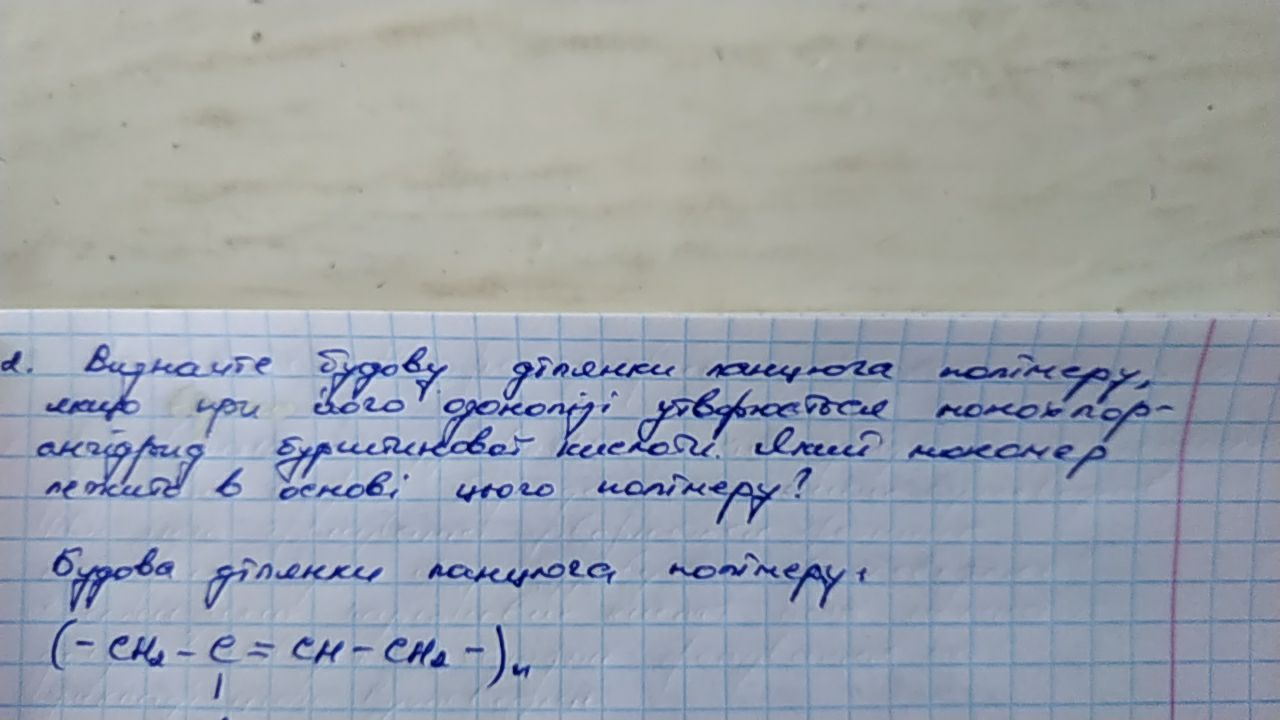 2. Визначте будову ділянки ланцюга полімеру,
якщо при його озонолізі утворюється монохлор-
ангідрид бурштинової кислоти. Який мономер
лежить в основі цього полімеру?
Будова ділянки ланцюга полімеру:
(- CH₂ - C = CH - CH₂ -)n